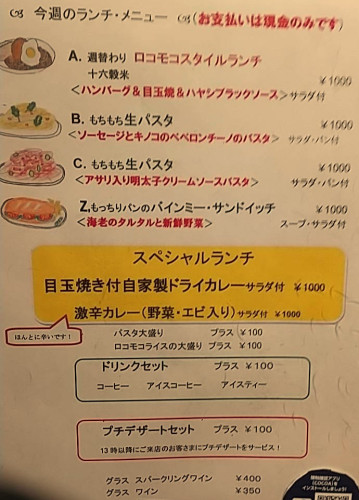 今週のランチ・メニュー (お支払いは現金のみです)
A. 週替わり ロコモコスタイルランチ
十六穀米 ¥1000
<ハンバーグ&目玉焼&ハヤシブラックソース> サラダ付
B. もちもち生パスタ ¥1000
<ソーセージとキノコのペペロンチーノのパスタ> サラダ・パン付
C. もちもち生パスタ ¥1000
<アサリ入り明太子クリームソースパスタ> サラダ・パン付
Z. もっちりパンのバインミー・サンドイッチ ¥1000
<海老のタルタルと新鮮野菜> スープ・サラダ付
スペシャルランチ
目玉焼き付自家製ドライカレー サラダ付 ¥1000
激辛カレー(野菜・エビ入り) サラダ付 ¥1000
ほんとに辛いです!
パスタ大盛り プラス ¥100
ロコモコライスの大盛り プラス ¥100
ドリンクセット プラス ¥100
コーヒー アイスコーヒー アイスティー
プチデザートセット プラス ¥100
13時以降にご来店のお客さまにプチデザートをサービス!
グラス スパークリングワイン ¥400
グラス ワイン ¥350
接触確認アプリ
(COCOA)を
インストールしましょう!